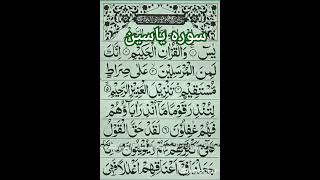 سورہ یاسین
يٰسٓ ۚ وَالْقُرْاٰنِ الْحَكِيْمِ ۙ اِنَّكَ
لَمِنَ الْمُرْسَلِيْنَ ۙ عَلٰى صِرَاطٍ
مُّسْتَقِيْمٍ ؕ تَنْزِيْلَ الْعَزِيْزِ الرَّحِيْمِ ۙ
لِتُنْذِرَ قَوْمًا مَّاۤ اُنْذِرَ اٰبَآؤُهُمْ
فَهُمْ غٰفِلُوْنَ لَقَدْ حَقَّ الْقَوْلُ
عَلٰٓى لَا يُؤْمِنُوْنَ
جَعَلْنَا فِيْۤ اَعْنَاقِهِمْ اَغْلٰلًا فَهِيَ